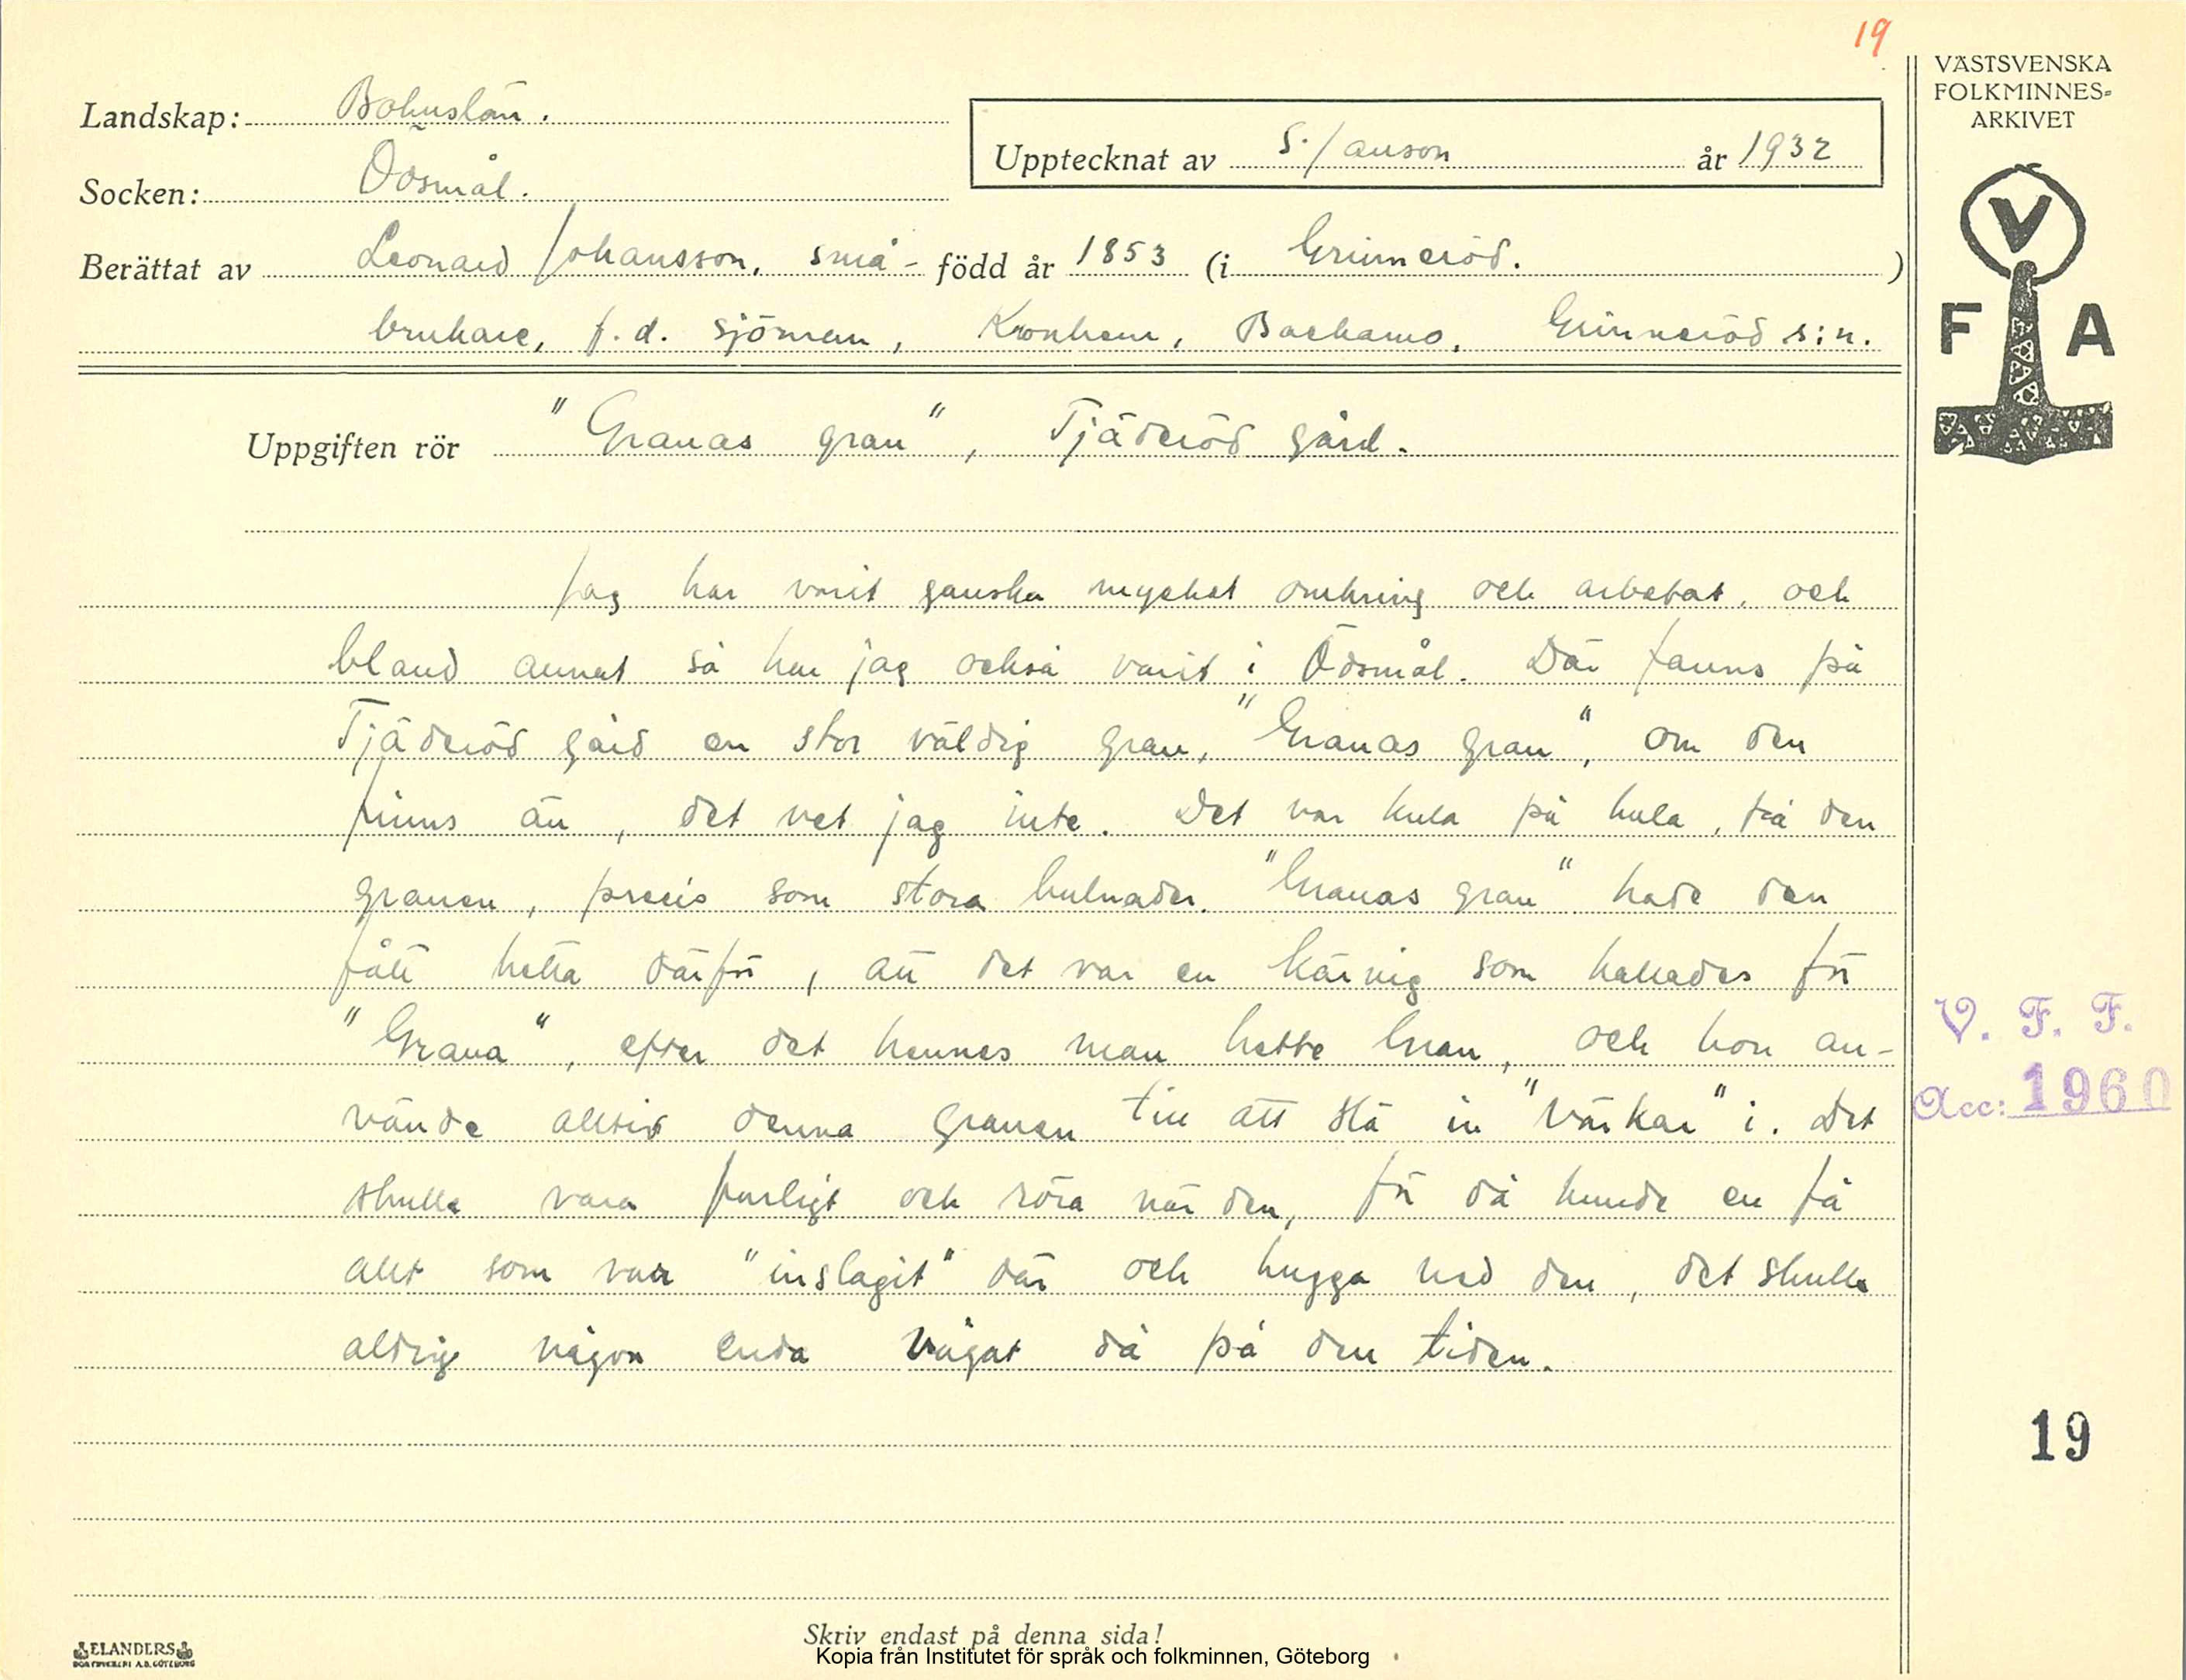 19
VÄSTSVENSKA
FOLKMINNES-
ARKIVET
Landskap: Bohuslän.
Upptecknat av S. Janson år 1932
Socken: Ödsmål.
Berättat av Leonard Johansson, små- född år 1853 (i Grinneröd.)
brukare, f.d. sjöman, Kronhem, Backamo, Grinneröd s:n.
V
F A
Uppgiften rör "Granas gran", Tjäderöd gård.
Jag har varit ganska mycket omkring och arbetat, och
bland annat så har jag också varit i Ödsmål. Där fanns på
Tjäderöd gård en stor väldig gran, "Granas gran", om den
finns än, det vet jag inte. Det var kula på kula, på den
granen, precis som stora bulnader. "Granas gran" hade den
fått heta därför, att det var en käring som kallades för
"Grana", efter det hennes man hette Gran, och hon an-
vände alltid denna granen till att slå in "Värkar" i. Det
skulle vara farligt och röra när den, för då kunde en få
allt som var "inslagit" där och hugga ned den, det skulle
aldrig någon enda vågat då på den tiden.
V. F. F.
Acc: 1960
19
Skriv endast på denna sida!
ELANDERS
BOKTRYCKERI A.B. GÖTEBORG
Kopia från Institutet för språk och folkminnen, Göteborg